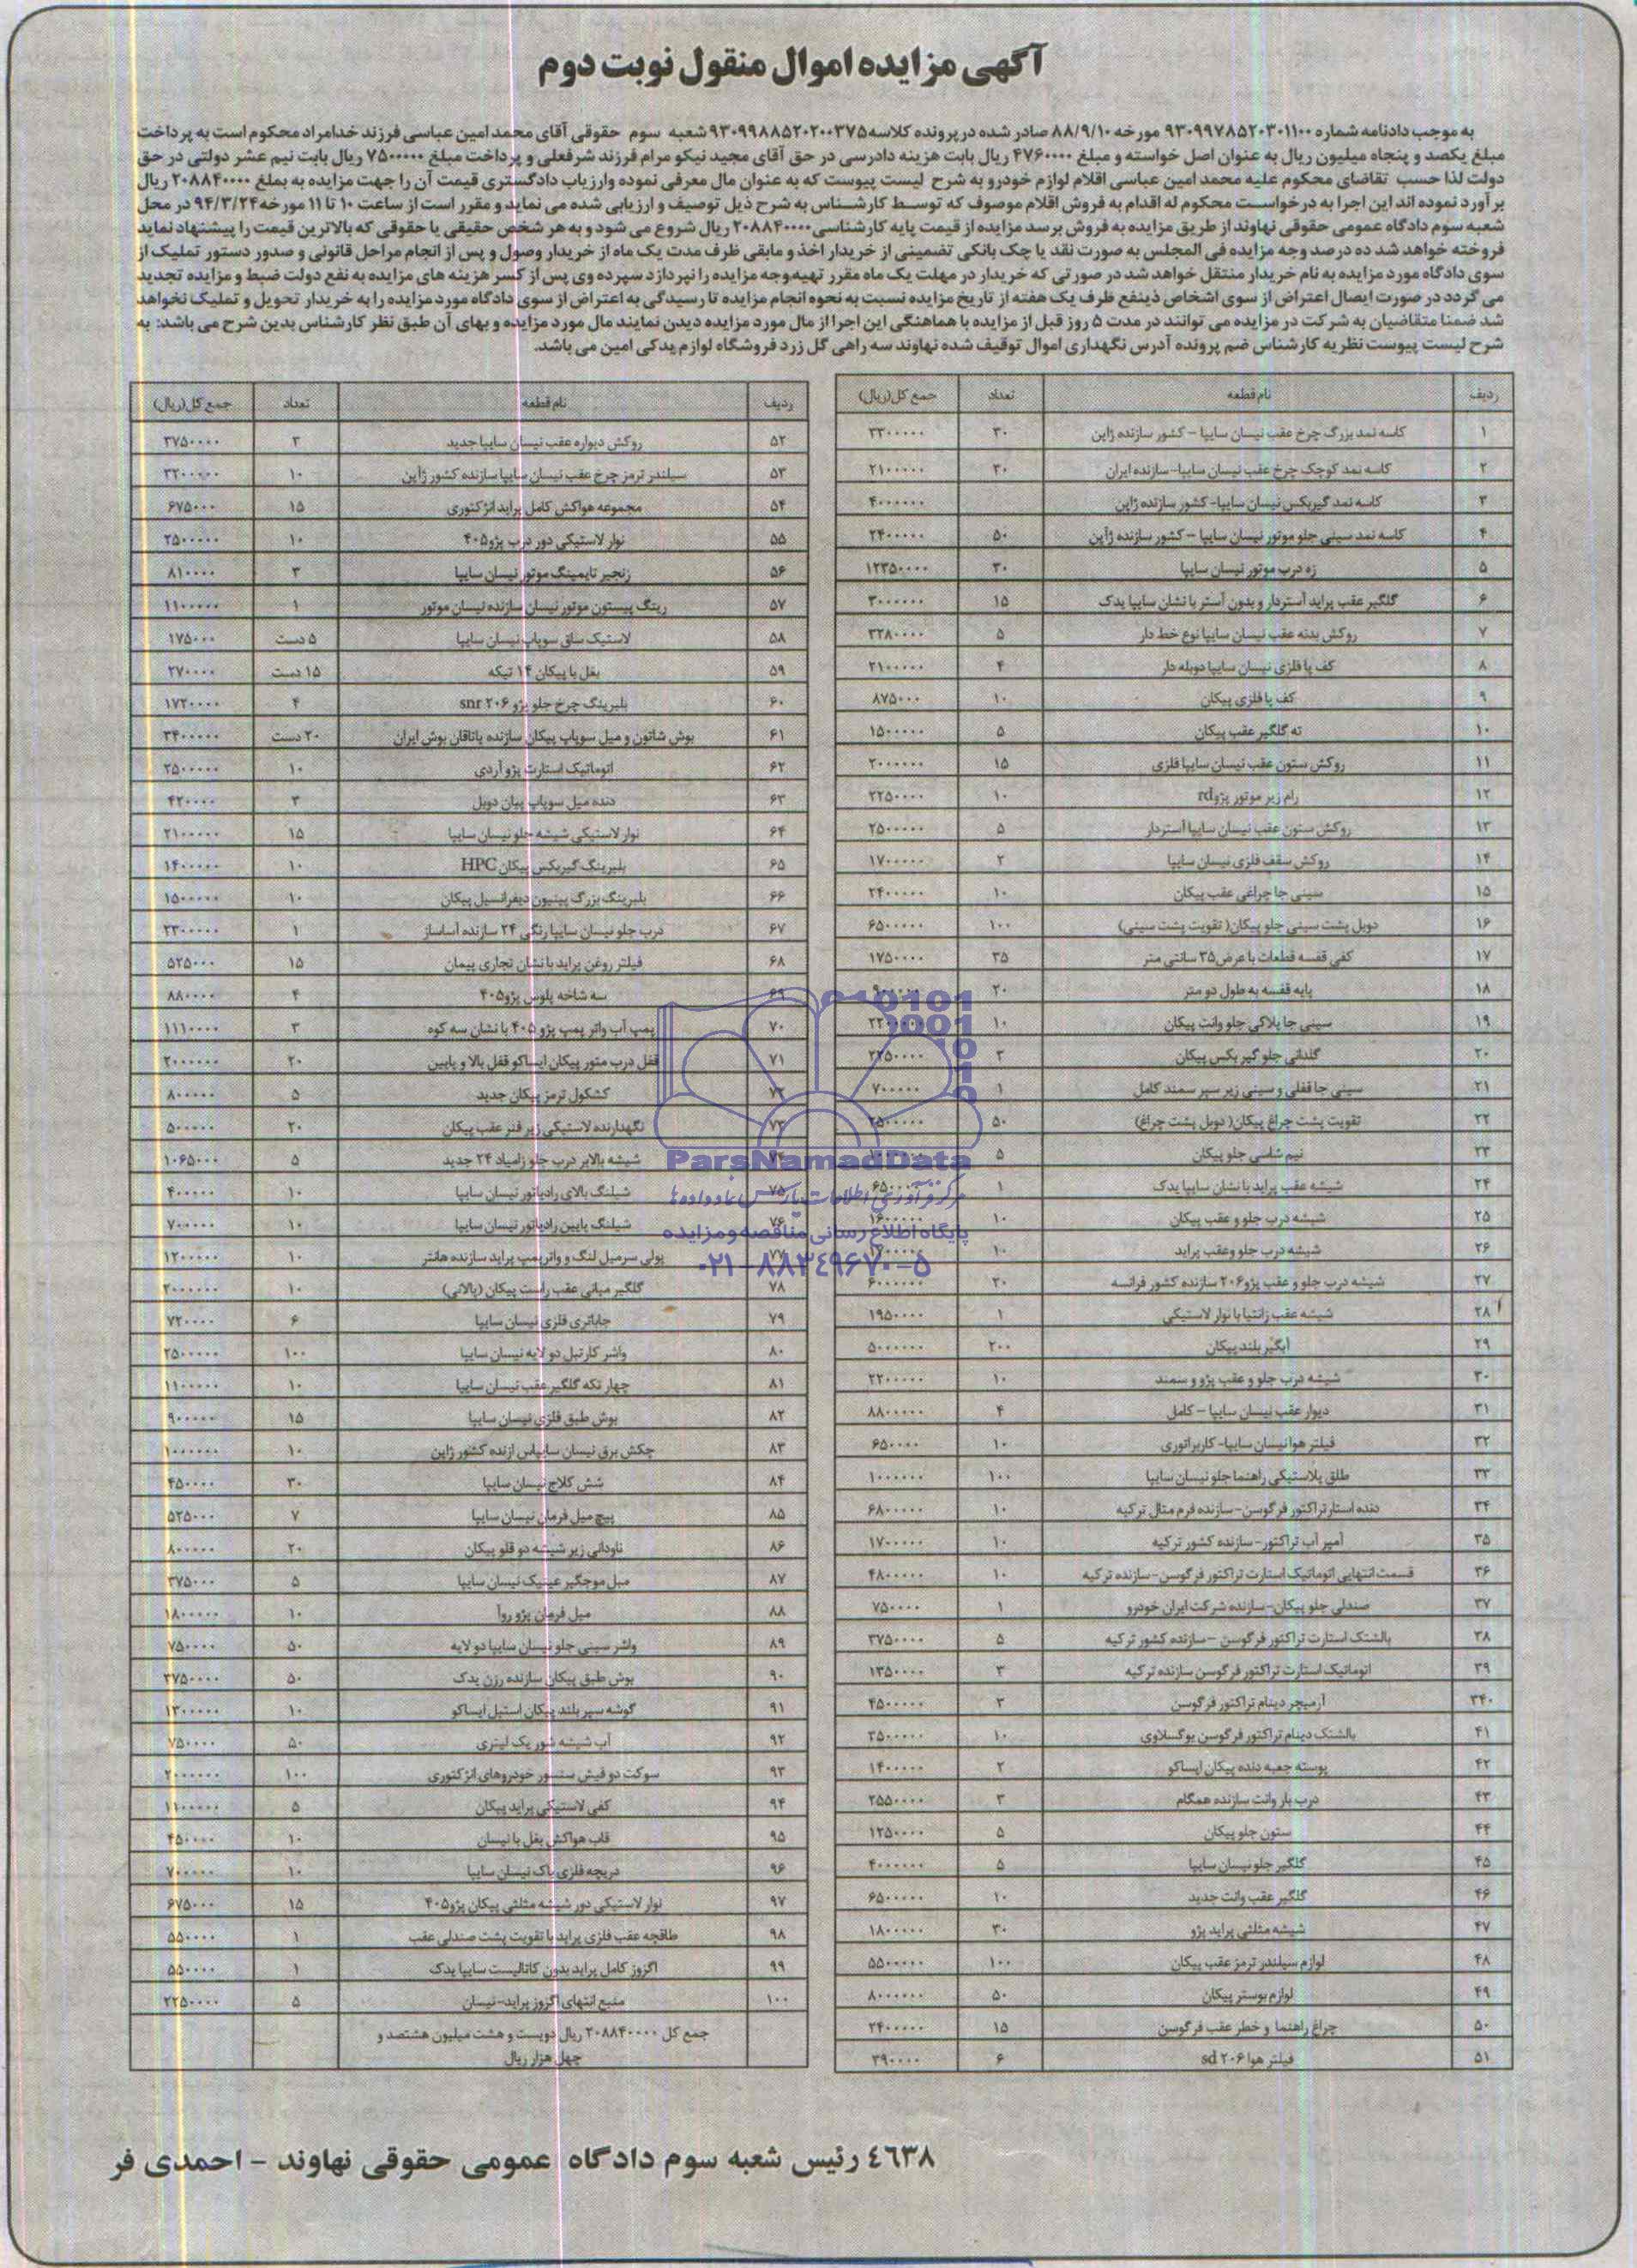 آگهی مزایده اموال منقول نوبت دوم
به موجب دادنامه شماره ۹۳۰۹۹۷۸۵۲۰۳۰۱۱۰۰ مورخه ۸۸/۹/۱۰ صادر شده در پرونده کلاسه ۹۳۰۹۹۸۸۵۲۰۲۰۰۳۷۵ شعبه سوم حقوقی آقای محمد امین عباسی فرزند خدامراد محکوم است به پرداخت
مبلغ یکصد و پنجاه میلیون ریال به عنوان اصل خواسته و مبلغ ۴۷۶۰۰۰۰ ریال بابت هزینه دادرسی در حق آقای مجید نیکو مرام فرزند شرفعلی و پرداخت مبلغ ۷۵۰۰۰۰۰ ریال بابت نیم عشر دولتی در حق
دولت لذا حسب تقاضای محکوم علیه محمد امین عباسی اقلام لوازم خودرو به شرح لیست پیوست که به عنوان مال معرفی نموده وارزیاب دادگستری قیمت آن را جهت مزایده به بمبلغ ۲۰۸۸۴۰۰۰۰ ریال
بر آورد نموده اند این اجرا به درخواست محکوم له اقدام به فروش اقلام موصوف که توسط کارشناس به شرح ذیل توصیف و ارزیابی شده می نماید و مقرر است از ساعت ۱۰ تا ۱۱ مورخه ۹۴/۳/۲۴ در محل
شعبه سوم دادگاه عمومی حقوقی نهاوند از طریق مزایده به فروش برسد مزایده از قیمت پایه کارشناسی ۲۰۸۸۴۰۰۰۰ ریال شروع می شود و به هر شخص حقیقی یا حقوقی که بالاترین قیمت را پیشنهاد نماید
فروخته خواهد شد ده درصد وجه مزایده فی المجلس به صورت نقد یا چک بانکی تضمینی از خریدار اخذ و مابقی ظرف مدت یک ماه از خریدار وصول و پس از انجام مراحل قانونی و صدور دستور تملیک از
سوی دادگاه مورد مزایده به نام خریدار منتقل خواهد شد در صورتی که خریدار در مهلت یک ماه مقرر تهیه‌وجه مزایده را نپردازد سپرده وی پس از کسر هزینه های مزایده به نفع دولت ضبط و مزایده تجدید
می گردد در صورت ایصال اعتراض از سوی اشخاص ذینفع ظرف یک هفته از تاریخ مزایده نسبت به نحوه انجام مزایده تا رسیدگی به اعتراض از سوی دادگاه مورد مزایده را به خریدار تحویل و تملیک نخواهد
شد ضمنا متقاضیان به شرکت در مزایده می توانند در مدت ۵ روز قبل از مزایده با هماهنگی این اجرا از مال مورد مزایده دیدن نمایند مال مورد مزایده و بهای آن طبق نظر کارشناس بدین شرح می باشد: به
شرح لیست پیوست نظریه کارشناس ضم پرونده آدرس نگهداری اموال توقیف شده نهاوند سه راهی گل زرد فروشگاه لوازم یدکی امین می باشد.
ردیف نام قطعه تعداد جمع کل(ریال)
۱ کاسه نمد بزرگ چرخ عقب نیسان سایپا - کشور سازنده ژاپن ۳۰ ۳۳۰۰۰۰۰
۲ کاسه نمد کوچک چرخ عقب نیسان سایپا-سازنده ایران ۳۰ ۲۱۰۰۰۰۰
۳ کاسه نمد گیربکس نیسان سایپا- کشور سازنده ژاپن ۴۰۰۰۰۰۰
۴ کاسه نمد سینی جلو موتور نیسان سایپا - کشور سازنده ژاپن ۵۰ ۲۴۰۰۰۰۰
۵ زه درب موتور نیسان سایپا ۳۰ ۱۲۳۵۰۰۰۰
۶ گلگیر عقب پراید آستردار و بدون آستر با نشان سایپا یدک ۱۵ ۳۰۰۰۰۰۰
۷ روکش بدنه عقب نیسان سایپا نوع خط دار ۵ ۳۲۸۰۰۰۰
۸ کف پا فلزی نیسان سایپا دوبله دار ۴ ۲۱۰۰۰۰۰
۹ کف پا فلزی پیکان ۱۰ ۸۷۵۰۰۰
۱۰ ته گلگیر عقب پیکان ۵ ۱۵۰۰۰۰۰
۱۱ روکش ستون عقب نیسان سایپا فلزی ۱۵ ۲۰۰۰۰۰۰
۱۲ رام زیر موتور پژو rd ۱۰ ۲۲۵۰۰۰۰
۱۳ روکش ستون عقب نیسان سایپا آستردار ۵ ۲۵۰۰۰۰۰
۱۴ روکش سقف فلزی نیسان سایپا ۲ ۱۷۰۰۰۰۰
۱۵ سینی جا چراغی عقب پیکان ۱۰ ۲۴۰۰۰۰۰
۱۶ دوبل پشت سینی جلو پیکان( تقویت پشت سینی) ۱۰۰ ۶۵۰۰۰۰۰
۱۷ کفی قفسه قطعات با عرض ۳۵ سانتی متر ۳۵ ۱۷۵۰۰۰۰
۱۸ پایه قفسه به طول دو متر ۲۰
۱۹ سینی جا پلاکی جلو وانت پیکان ۱۰
۲۰ گلدانی جلو گیر بکس پیکان ۳
۲۱ سینی جا قفلی و سینی زیر سپر سمند کامل ۱ ۷۰۰۰۰۰
۲۲ تقویت پشت چراغ پیکان( دوبل پشت چراغ) ۵۰
۲۳ نیم شاسی جلو پیکان ۵
۲۴ شیشه عقب پراید با نشان سایپا یدک ۱
۲۵ شیشه درب جلو و عقب پیکان ۱۰
۲۶ شیشه درب جلو وعقب پراید ۱۰
۲۷ شیشه درب جلو و عقب پژو ۲۰۶ سازنده کشور فرانسه ۲۰ ۶۰۰۰۰۰۰
۲۸ شیشه عقب زانتیا با نوار لاستیکی ۱ ۱۹۵۰۰۰۰
۲۹ آبگیر بلند پیکان ۲۰۰ ۵۰۰۰۰۰۰
۳۰ شیشه درب جلو و عقب پژو و سمند ۱۰ ۲۲۰۰۰۰۰
۳۱ دیوار عقب نیسان سایپا - کامل ۴ ۸۸۰۰۰۰۰
۳۲ فیلتر هوا نیسان سایپا- کاربراتوری ۱۰ ۶۵۰۰۰۰
۳۳ طلق پلاستیکی راهنما جلو نیسان سایپا ۱۰۰ ۱۰۰۰۰۰۰
۳۴ دنده استارتراکتور فرگوسن-سازنده فرم متال ترکیه ۱۰ ۶۸۰۰۰۰۰
۳۵ آمپر آب تراکتور-سازنده کشور ترکیه ۱۰ ۱۷۰۰۰۰۰
۳۶ قسمت انتهایی اتوماتیک استارت تراکتور فرگوسن-سازنده ترکیه ۱۰ ۴۸۰۰۰۰۰
۳۷ صندلی جلو پیکان-سازنده شرکت ایران خودرو ۱ ۷۵۰۰۰۰
۳۸ بالشتک استارت تراکتور فرگوسن -سازنده کشور ترکیه ۵ ۳۷۵۰۰۰۰
۳۹ اتوماتیک استارت تراکتور فرگوسن سازنده ترکیه ۳ ۱۳۵۰۰۰۰
۳۴۰ آرمیچر دینام تراکتور فرگوسن ۳ ۴۵۰۰۰۰۰
۴۱ بالشتک دینام تراکتور فرگوسن یوگسلاوی ۱۰ ۳۵۰۰۰۰۰
۴۲ پوسته جعبه دنده پیکان ایساکو ۲ ۱۴۰۰۰۰۰
۴۳ درب بار وانت سازنده همگام ۳ ۲۵۵۰۰۰۰
۴۴ ستون جلو پیکان ۵ ۱۲۵۰۰۰۰
۴۵ گلگیر جلو نیسان سایپا ۵ ۴۰۰۰۰۰۰
۴۶ گلگیر عقب وانت جدید ۱۰ ۶۵۰۰۰۰۰
۴۷ شیشه مثلثی پراید پژو ۳۰ ۱۸۰۰۰۰۰
۴۸ لوازم سیلندر ترمز عقب پیکان ۱۰۰ ۵۵۰۰۰۰۰
۴۹ لوازم بوستر پیکان ۵۰ ۸۰۰۰۰۰۰
۵۰ چراغ راهنما و خطر عقب فرگوسن ۱۵ ۲۴۰۰۰۰۰
۵۱ فیلتر هوا ۲۰۶ sd ۶ ۳۹۰۰۰۰
ردیف نام قطعه تعداد جمع کل(ریال)
۵۲ روکش دیواره عقب نیسان سایپا جدید ۳ ۳۷۵۰۰۰۰
۵۳ سیلندر ترمز چرخ عقب نیسان سایپا سازنده کشور ژاپن ۱۰ ۳۲۰۰۰۰۰
۵۴ مجموعه هواکش کامل پراید انژکتوری ۱۵ ۶۷۵۰۰۰
۵۵ نوار لاستیکی دور درب پژو ۴۰۵ ۱۰ ۲۵۰۰۰۰۰
۵۶ زنجیر تایمینگ موتور نیسان سایپا ۳ ۸۱۰۰۰۰
۵۷ رینگ پیستون موتور نیسان سازنده نیسان موتور ۱ ۱۱۰۰۰۰۰
۵۸ لاستیک ساق سوپاپ نیسان سایپا ۵ دست ۱۷۵۰۰۰
۵۹ بغل یا پیکان ۱۴ تیکه ۱۵ دست ۲۷۰۰۰۰
۶۰ بلبرینگ چرخ جلو پژو ۲۰۶ snr ۴ ۱۷۲۰۰۰۰
۶۱ بوش شاتون و میل سوپاپ پیکان سازنده یاتاقان بوش ایران ۲۰ دست ۳۴۰۰۰۰۰
۶۲ اتوماتیک استارت پژو آردی ۱۰ ۲۵۰۰۰۰۰
۶۳ دنده میل سوپاپ پیان دوبل ۳ ۴۲۰۰۰۰
۶۴ نوار لاستیکی شیشه جلو نیسان سایپا ۱۵ ۲۱۰۰۰۰۰
۶۵ بلبرینگ گیربکس پیکان HPC ۱۰ ۱۴۰۰۰۰۰
۶۶ بلبرینگ بزرگ پینیون دیفرانسیل پیکان ۱۰ ۱۵۰۰۰۰۰
۶۷ درب جلو نیسان سایپا رنگی ۲۴ سازنده آساساز ۱ ۲۳۰۰۰۰۰
۶۸ فیلتر روغن پراید با نشان تجاری پیمان ۱۵ ۵۲۵۰۰۰
۶۹ سه شاخه پلوس پژو ۴۰۵ ۴ ۸۸۰۰۰۰
۷۰ پمپ آب واتر پمپ پژو ۴۰۵ با نشان سه کوه ۳ ۱۱۱۰۰۰۰
۷۱ قفل درب متور پیکان ایساکو قفل بالا و پایین ۲۰ ۲۰۰۰۰۰۰
۷۲ کشکول ترمز پیکان جدید ۵ ۸۰۰۰۰۰
۷۳ نگهدارنده لاستیکی زیر فنر عقب پیکان ۲۰ ۵۰۰۰۰۰
۷۴ شیشه بالابر درب جلو زامیاد ۲۴ جدید ۵ ۱۰۶۵۰۰۰
۷۵ شیلنگ بالای رادیاتور نیسان سایپا ۱۰ ۴۰۰۰۰۰
۷۶ شیلنگ پایین رادیاتور نیسان سایپا ۱۰ ۷۰۰۰۰۰
۷۷ پولی سرمیل لنگ و واترپمپ پراید سازنده هانتر ۱۰ ۱۲۰۰۰۰۰
۷۸ گلگیر میانی عقب راست پیکان (پالانی) ۱۰ ۲۰۰۰۰۰۰
۷۹ جاباتری فلزی نیسان سایپا ۶ ۷۲۰۰۰۰
۸۰ واشر کارتیل دو لایه نیسان سایپا ۱۰۰ ۲۵۰۰۰۰۰
۸۱ چهار تکه گلگیر عقب نیسان سایپا ۱۰ ۱۱۰۰۰۰۰
۸۲ بوش طبق فلزی نیسان سایپا ۱۵ ۹۰۰۰۰۰
۸۳ چکش برق نیسان سایپاس ازنده کشور ژاپن ۱۰ ۱۰۰۰۰۰۰
۸۴ شش کلاج نیسان سایپا ۳۰ ۴۵۰۰۰۰
۸۵ پیچ میل فرمان نیسان سایپا ۷ ۵۲۵۰۰۰
۸۶ ناودانی زیر شیشه دو قلو پیکان ۲۰ ۸۰۰۰۰۰
۸۷ میل موجگیر عینیک نیسان سایپا ۵ ۳۷۵۰۰۰
۸۸ میل فرمان پژو روآ ۱۰ ۱۸۰۰۰۰۰
۸۹ واشر سینی جلو نیسان سایپا دو لایه ۵۰ ۷۵۰۰۰۰
۹۰ بوش طبق پیکان سازنده رزن یدک ۵۰ ۳۷۵۰۰۰۰
۹۱ گوشه سپر بلند پیکان استیل ایساکو ۱۰ ۱۳۰۰۰۰۰
۹۲ آب شیشه شور یک لیتری ۵۰ ۷۵۰۰۰۰
۹۳ سوکت دو فیش سنسور خودروهای انژکتوری ۱۰۰ ۲۰۰۰۰۰۰
۹۴ کفی لاستیکی پراید پیکان ۵ ۱۱۰۰۰۰۰
۹۵ قاب هواکش بغل با نیسان ۱۰ ۴۵۰۰۰۰
۹۶ دریچه فلزی باک نیسان سایپا ۱۰ ۷۰۰۰۰۰
۹۷ نوار لاستیکی دور شیشه مثلثی پیکان پژو ۴۰۵ ۱۵ ۶۷۵۰۰۰
۹۸ طاقچه عقب فلزی پراید با تقویت پشت صندلی عقب ۱ ۵۵۰۰۰۰
۹۹ اگزوز کامل پراید بدون کاتالیست سایپا یدک ۱ ۵۵۰۰۰۰
۱۰۰ منبع انتهای اگزوز پراید-نیسان ۵ ۲۲۵۰۰۰۰
جمع کل ۲۰۸۸۴۰۰۰۰ ریال دویست و هشت میلیون هشتصد و
چهل هزار ریال
ParsNamadData
مرکز فرآوری اطلاعات پارس نماد داده ها
پایگاه اطلاع رسانی مناقصه و مزایده
۰۲۱-۸۸۳۴۹۶۷۰-۵
۴۶۳۸ رئیس شعبه سوم دادگاه عمومی حقوقی نهاوند - احمدی فر